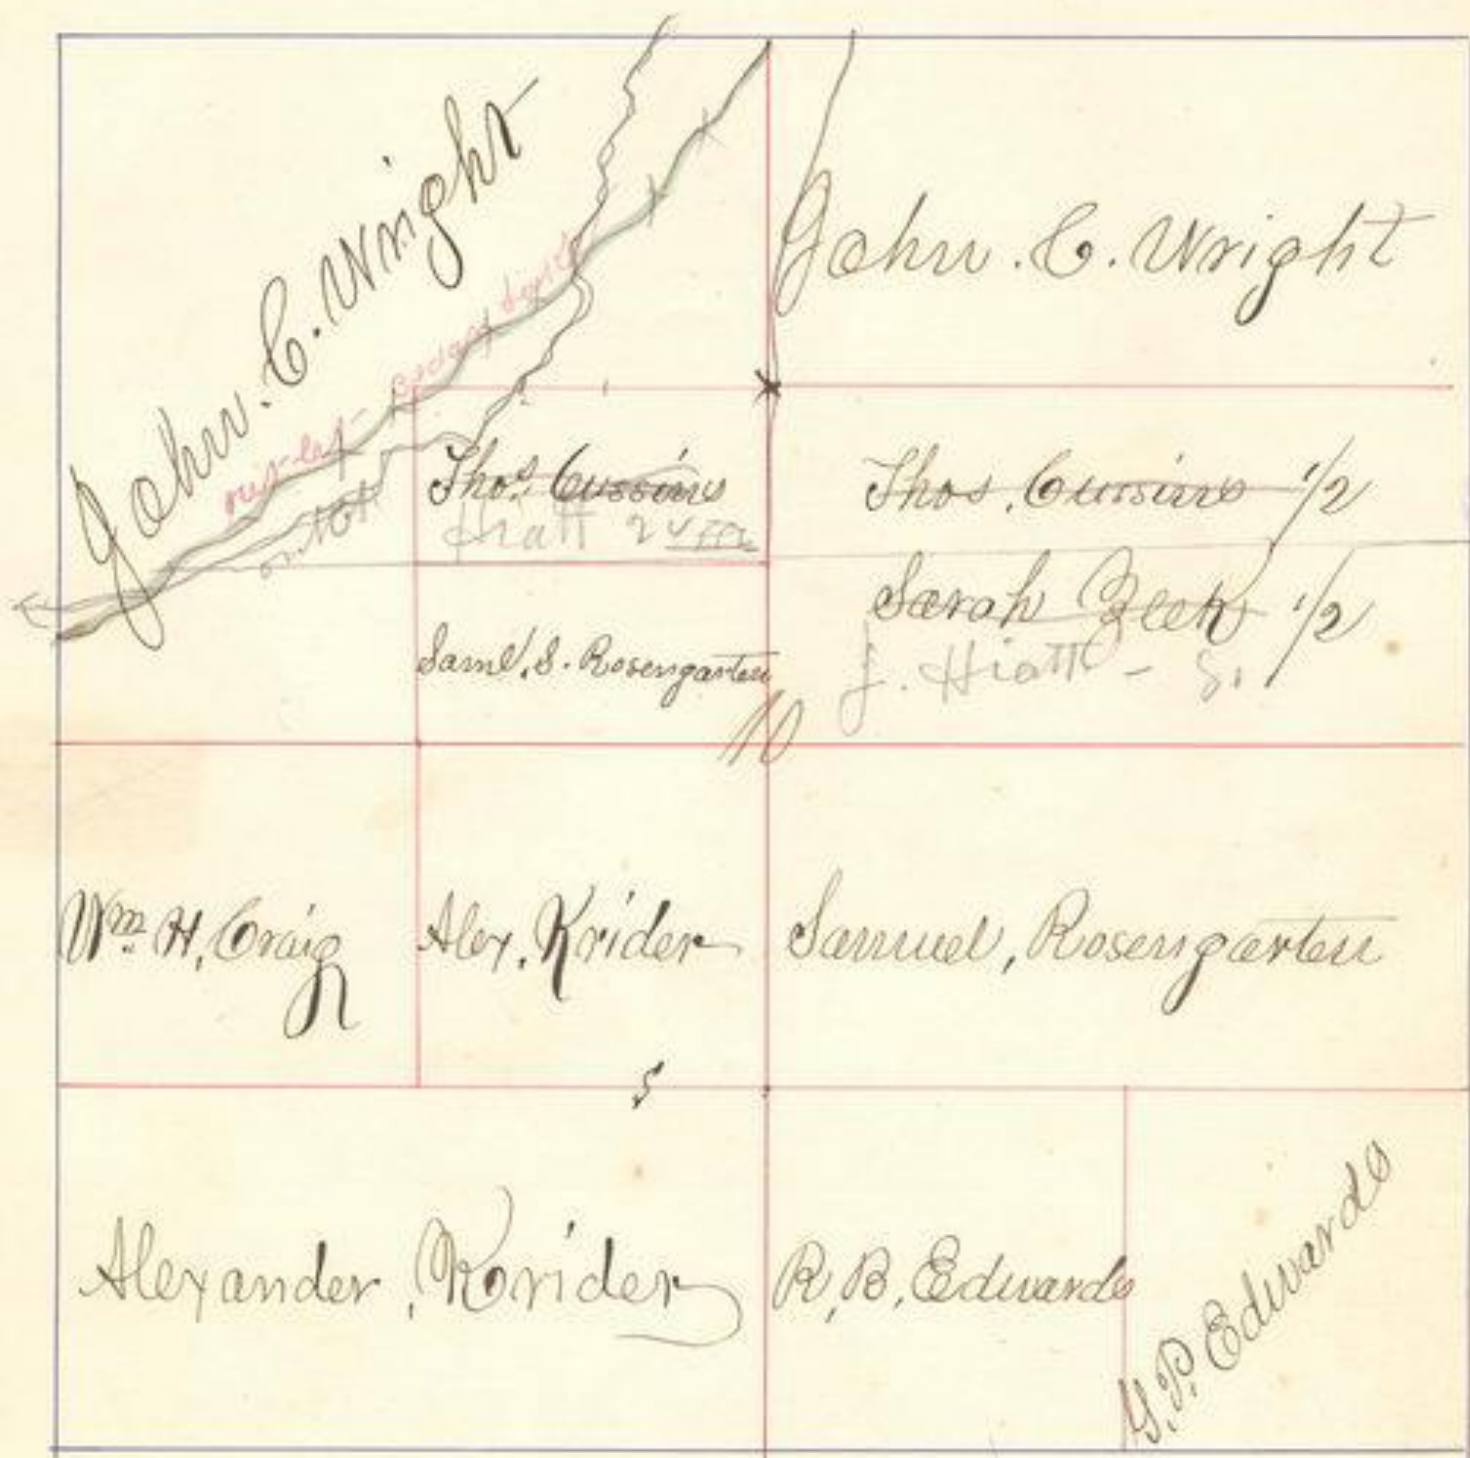 John. C. Wright
John. C. Wright
Thos. Cussins
Hiatt
Thos. Cussins 1/2
Sarah Zeek 1/2
J. Hiatt - S.
Saml. S. Rosengarten
10
Wm. H. Craig
Alex. Krider
Samuel, Rosengarten
5
Alexander, Krider
R. B. Edwards
G. P. Edwards